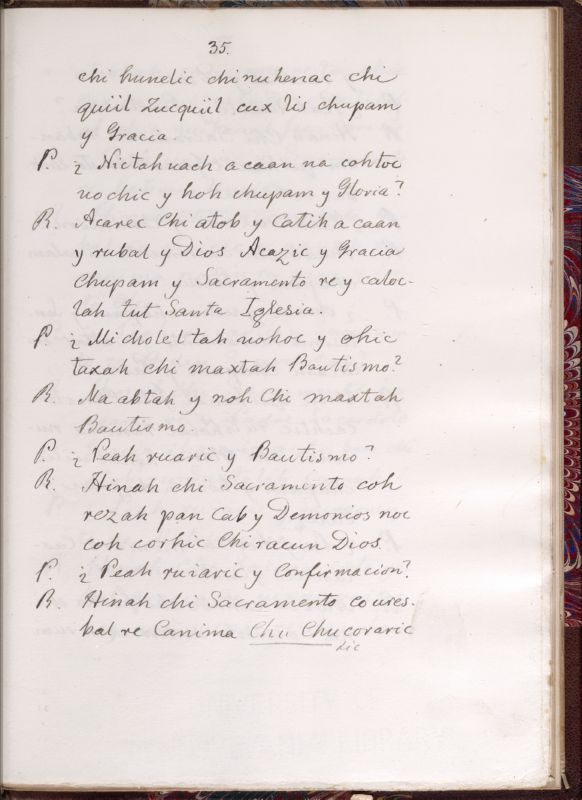 35.
chi hunelic chi nu henac chi
quiil Zucquiil cux lis chupam
y Gracia
P. ¿ Nictah uach a caan na cohtoc
uochic y hoh chupam y Gloria?
R. Acarec Chi atob y Catih a caan
y rubal y Dios Acazic y Gracia
Chupam y Sacramento re y caloc-
lah tut Santa Iglesia.
P. ¿ Micholel tah uohoc y ohic
taxah chi maxtah Bautismo?
R. Ma abtah y noh Chi maxtah
Bautismo.
P. ¿ Peah ruaric y Bautismo?
R. Hinah chi Sacramento coh
rezah pan Cab y Demonios noc
coh corhic Chiracun Dios.
P. ¿ Peah ruiaric y Confirmacion?
R. Hinah chi Sacramento co ures-
bal re Canima Chu Chucoraric
sic